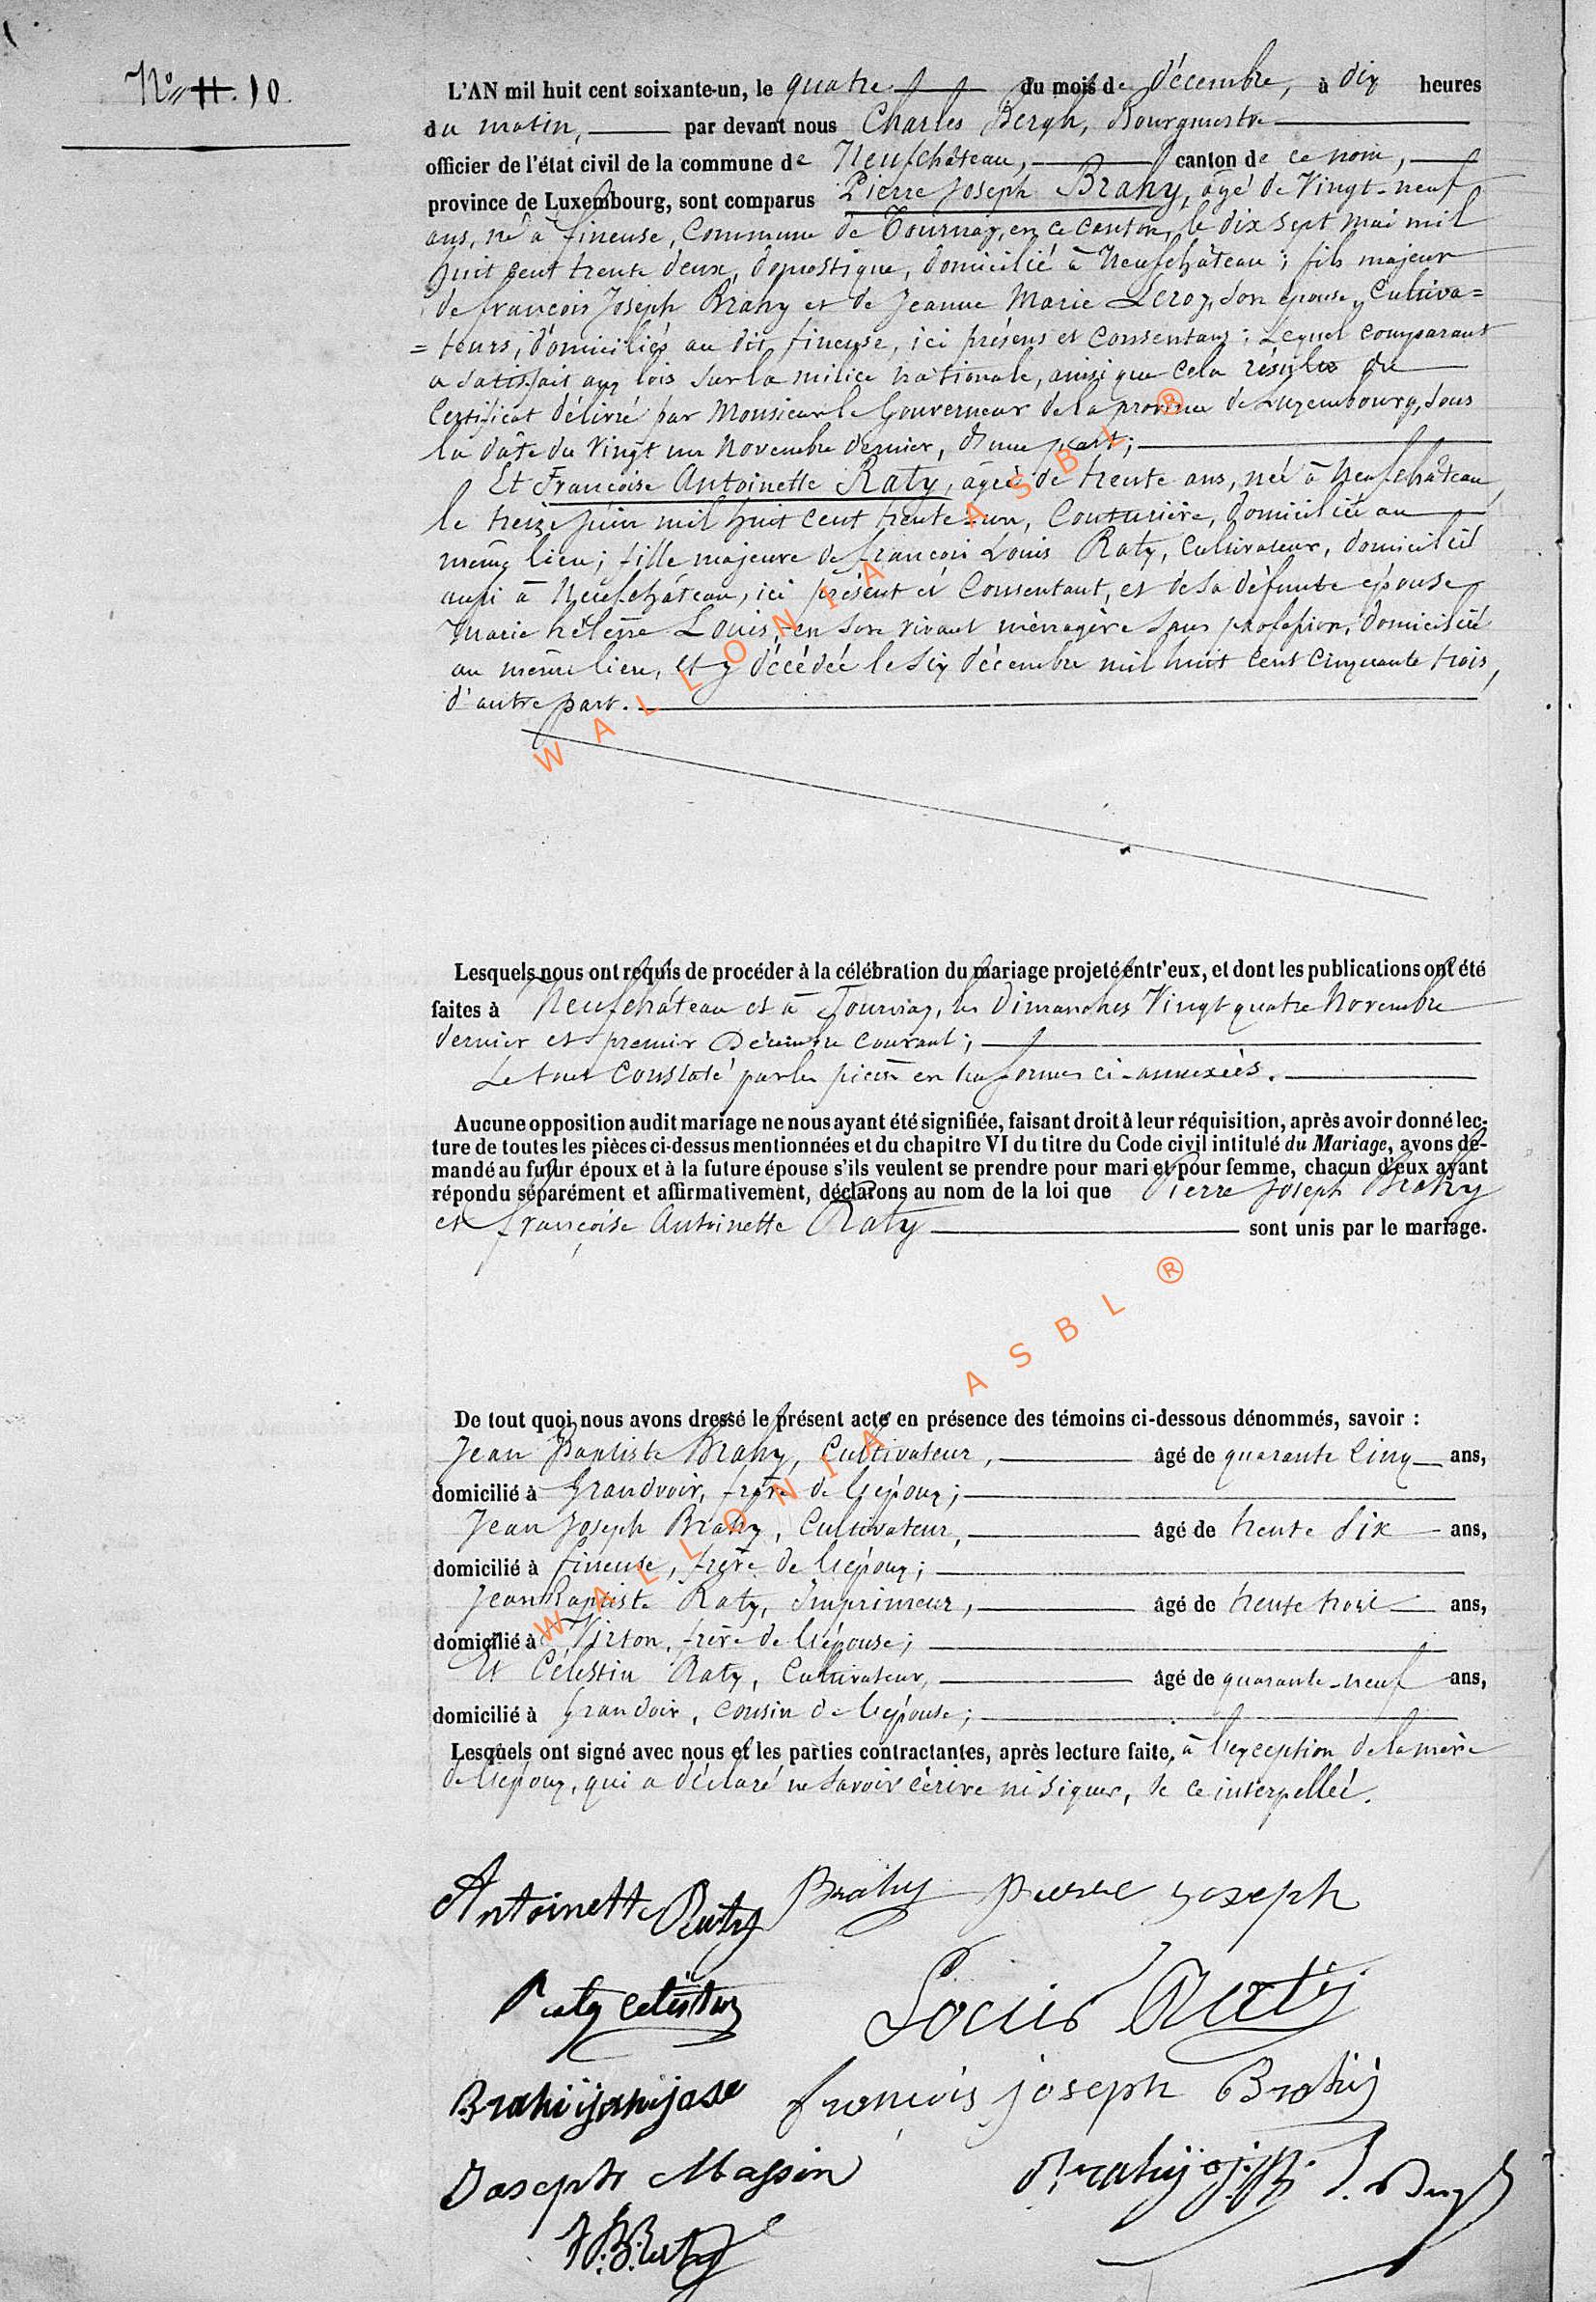 N° 11. 10.
L'AN mil huit cent soixante-un, le quatre du mois de décembre, à dix heures
du matin, par devant nous Charles Bergh, Bourgmestre
officier de l'état civil de la commune de Neufchâteau, canton de ce nom,
province de Luxembourg, sont comparus Pierre Joseph Brahy, âgé de Vingt-neuf
ans, né à fineuse, Commune de Tournay, en ce Canton, le dix sept mai mil
huit cent trente deux, domestique, domicilié à Neufchâteau; fils majeur
de françois Joseph Brahy et de Jeanne Marie Leroy, son épouse, Cultiva=
=teurs, domiciliés au dit fineuse, ici présens et Consentans; Lequel comparant
a satisfait aux lois sur la milice nationale, ainsi que cela résulte du
Certificat délivré par Monsieur le Gouverneur de la province de Luxembourg, sous
la date du Vingt un Novembre dernier, d'une part;
Et Françoise Antoinette Raty, âgée de trente ans, né à Neufchâteau,
le treize Juin mil huit cent trente-un, Couturière, domiciliée au
même lieu; fille majeure de françois Louis Raty, Cultivateur, domicilié
aussi à Neufchâteau, ici présent et Consentant, et de sa défunte épouse
Marie hélène Louis, en son vivant ménagère sans profession, domiciliée
au même lieu, et y décédée le six décembre mil huit cent cinquante trois,
d'autre part.
Lesquels nous ont requis de procéder à la célébration du mariage projeté entr'eux, et dont les publications ont été
faites à Neufchâteau et à Tournay, les Dimanches Vingt quatre Novembre
dernier et premier Décembre courant;
Le tout Constaté par les pièces en due forme ci-annexées.
Aucune opposition audit mariage ne nous ayant été signifiée, faisant droit à leur réquisition, après avoir donné lec-
ture de toutes les pièces ci-dessus mentionnées et du chapitre VI du titre du Code civil intitulé du Mariage, avons de-
mandé au futur époux et à la future épouse s'ils veulent se prendre pour mari et pour femme, chacun d'eux ayant
répondu séparément et affirmativement, déclarons au nom de la loi que Pierre Joseph Brahy
et françoise Antoinette Raty sont unis par le mariage.
De tout quoi nous avons dressé le présent acte en présence des témoins ci-dessous dénommés, savoir :
Jean Baptiste Brahy, Cultivateur, âgé de quarante Cinq ans,
domicilié à Grandvoir, frère de l'époux;
Jean Joseph Brahy, Cultivateur, âgé de trente Six ans,
domicilié à fineuse, frère de l'époux;
Jean Baptiste Raty, Imprimeur, âgé de trente trois ans,
domicilié à Virton, frère de l'épouse;
Et Célestin Raty, Cultivateur, âgé de quarante-neuf ans,
domicilié à Grandvoir, cousin de l'épouse;
Lesquels ont signé avec nous et les parties contractantes, après lecture faite, à l'exception de la mère
de l'époux, qui a déclaré ne savoir écrire ni signer, de ce interpellée.
Antoinette Raty Brahy pierre joseph
Raty celestin Louis Raty
françois joseph Brahij
Joseph Massin Brahij j.B. C. Bergh
J.B. Raty
WALLONIA ASBL ®
WALLONIA ASBL ®